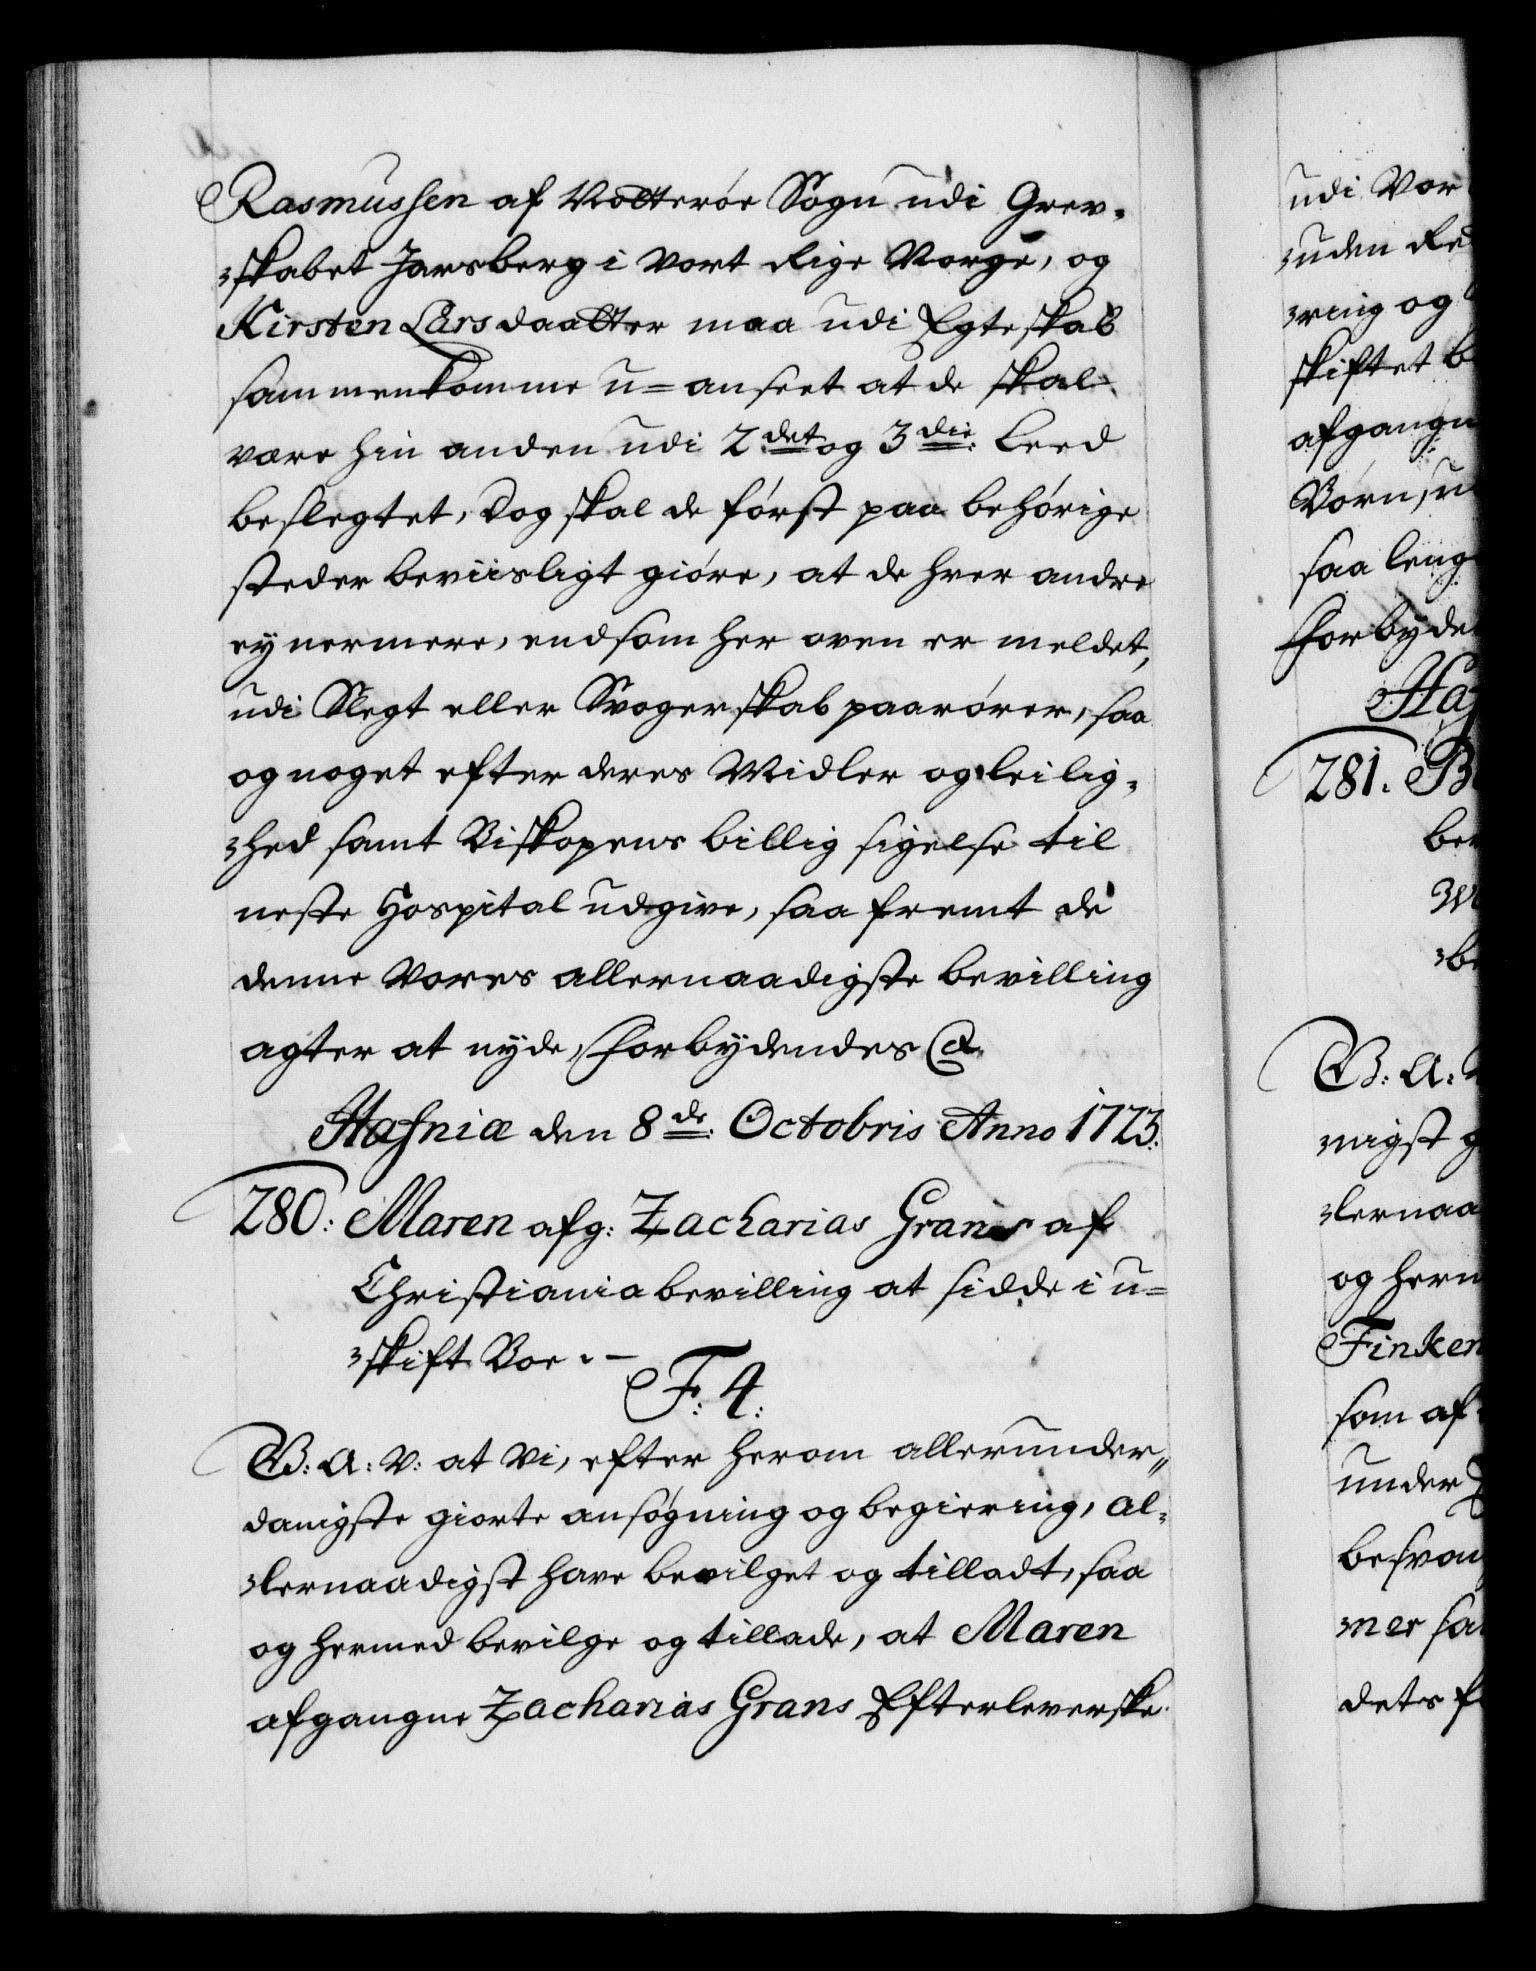 Rasmussen af Nøtterøe Sogn udi Grev-
-skabet Jarsberg i vort Rige Norge, og
Kirsten Larsdaatter maa udi Egteskab
sammenkomme u-anseet at de skal
være hin anden udi 2det og 3die Leed
beslegtet, dog skal de først paa behørige
steder beviisligt giøre, at de hver andre
ey nermere, end som her oven er meldet,
udi Slegt eller Svogerskab paarører, saa
og noget efter deres Midler og leilig-
-hed samt Biskopens billig sigelse til
neste Hospital udgive, saa fremt de
denne Vores allernaadigste bevilling
agter at nyde, Forbydendes &.
Hafniæ den 8de Octobris Anno 1723.
280: Maren afg: Zacharias Grans af
Christiania bevilling at sidde i u-
-skift Boe. -
F: 4:
G: A: V: at Vi, efter herom allerunder-
danigste giorte ansøgning og begiering, al-
-lernaadigst have bevilget og tilladt, saa
og hermed bevilge og tillade, at Maren
afgangne Zacharias Grans Efterleverske
udi Vor
-uden
-ring og
skiftet
afgangn
Børn, u
saa leng
Forbyde
Haf
281. B
be
G: A:
-nigst g
-lernaa
og herm
Finken
som af
under
besvan
-ner sa
dets f